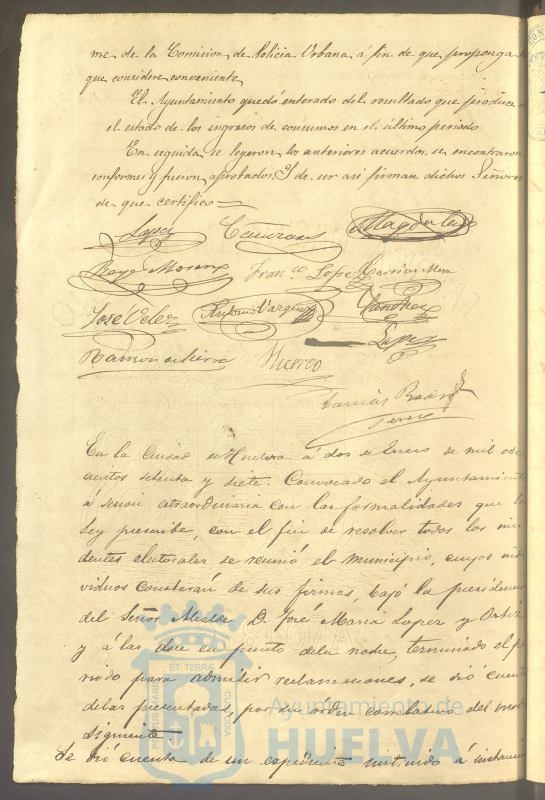 me de la Comision de Policia Urbana á fin de que proponga lo
que considere conveniente
El Ayuntamiento quedó enterado del resultado que produce
el estado de los ingresos de consumos en el último periodo
En seguida se leyeron los anteriores acuerdos, se encontraron
conformes y fueron aprobados. Y de ser asi firman dichos Señores
de que certifico
Lopez
Rojo Moreno Franco Lopez Garrido Mora
José Velez Antonio Vazquez Sanchez
Lopez
Ramon de Sierra Hierro
Perez
En la Ciudad de Huelva á dos de Enero de mil ocho
cientos setenta y siete. Convocado el Ayuntamiento
á sesion extraordinaria con las formalidades que la
Ley prescribe, con el fin de resolver todos los inci
dentes electorales se reunió el Municipio, cuyos indi
viduos constarán de sus firmas, bajo la presidencia
del Señor Alcalde D. José Maria Lopez y Ortiz
y á las doce en punto de la noche, terminado el pe
riodo para admitir reclamaciones, se dió cuenta
de las presentadas, por su órden correlativo del modo
siguiente
Se dió cuenta de un espediente instruido á instancia
PORTUS MARIS ET TERRAE CUSTODIA
Ayuntamiento de
HUELVA